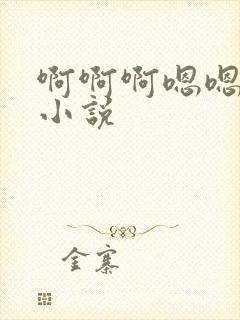 啊啊啊嗯嗯
小説
金寨